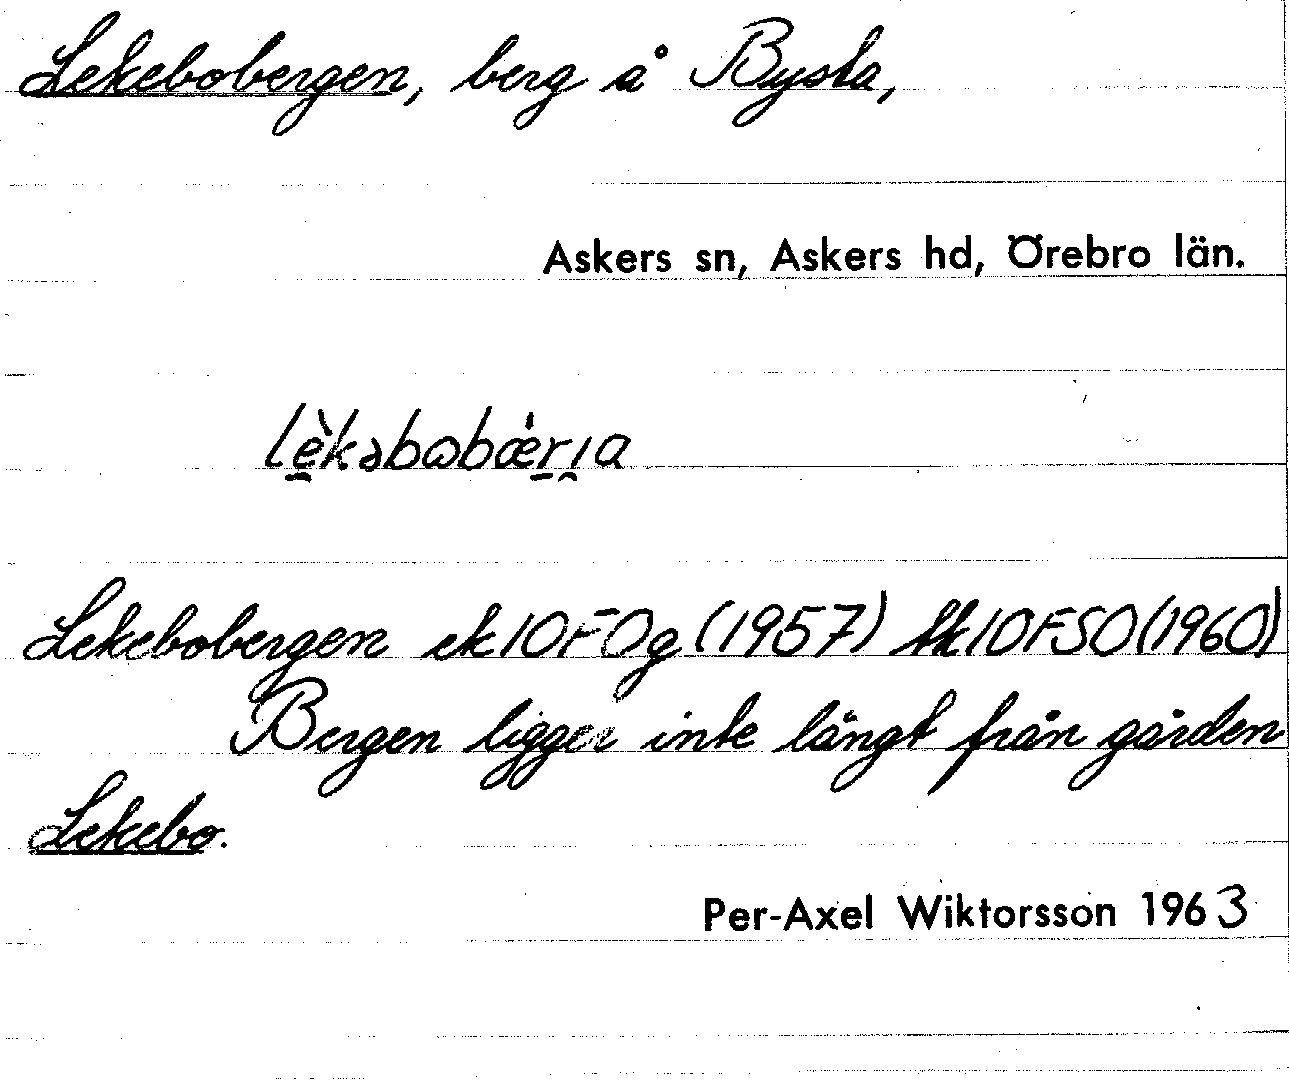 Lekebobergen, berg å Bysta,
Askers sn, Askers hd, Örebro län.
lè̱kəbωbæ̀ṟı̯a
Lekebobergen ek10F0g (1957) tk10FSO(1960)
Bergen ligger inte långt från gården
Lekebo.
Per-Axel Wiktorsson 1963